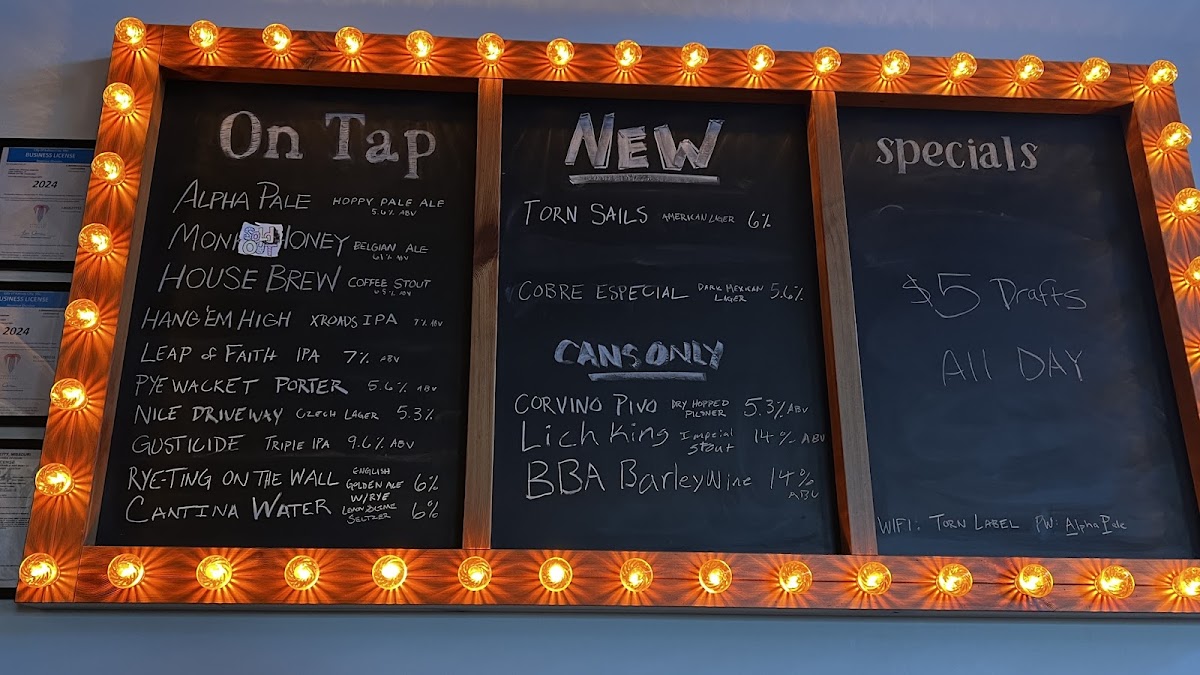 On Tap
ALPHA PALE HOPPY PALE ALE
5.6% ABV
MONK HONEY BELGIAN ALE
SOLD
OUT
6.1% ABV
HOUSE BREW COFFEE STOUT
HANG 'EM HIGH XROADS IPA 7% ABV
LEAP of FAITH IPA 7% ABV
PYEWACKET PORTER 5.6% ABV
NICE DRIVEWAY CZECH LAGER 5.3%
GUSTICIDE TRIPLE IPA 9.6% ABV
RYE-TING ON THE WALL ENGLISH GOLDEN ALE W/RYE 6%
CANTINA WATER LEMON LIME SELTZER 6%
NEW
TORN SAILS AMERICAN LAGER 6%
COBRE ESPECIAL DARK MEXICAN LAGER 5.6%
CANS ONLY
CORVINO PIVO DRY HOPPED PILSNER 5.3% ABV
Lich King Imperial Stout 14% ABV
BBA BarleyWine 14% ABV
specials
$5 Drafts
All DAY
WIFI: TORN LABEL PW: AlphaPale
BUSINESS LICENSE
2024
BUSINESS LICENSE
2024